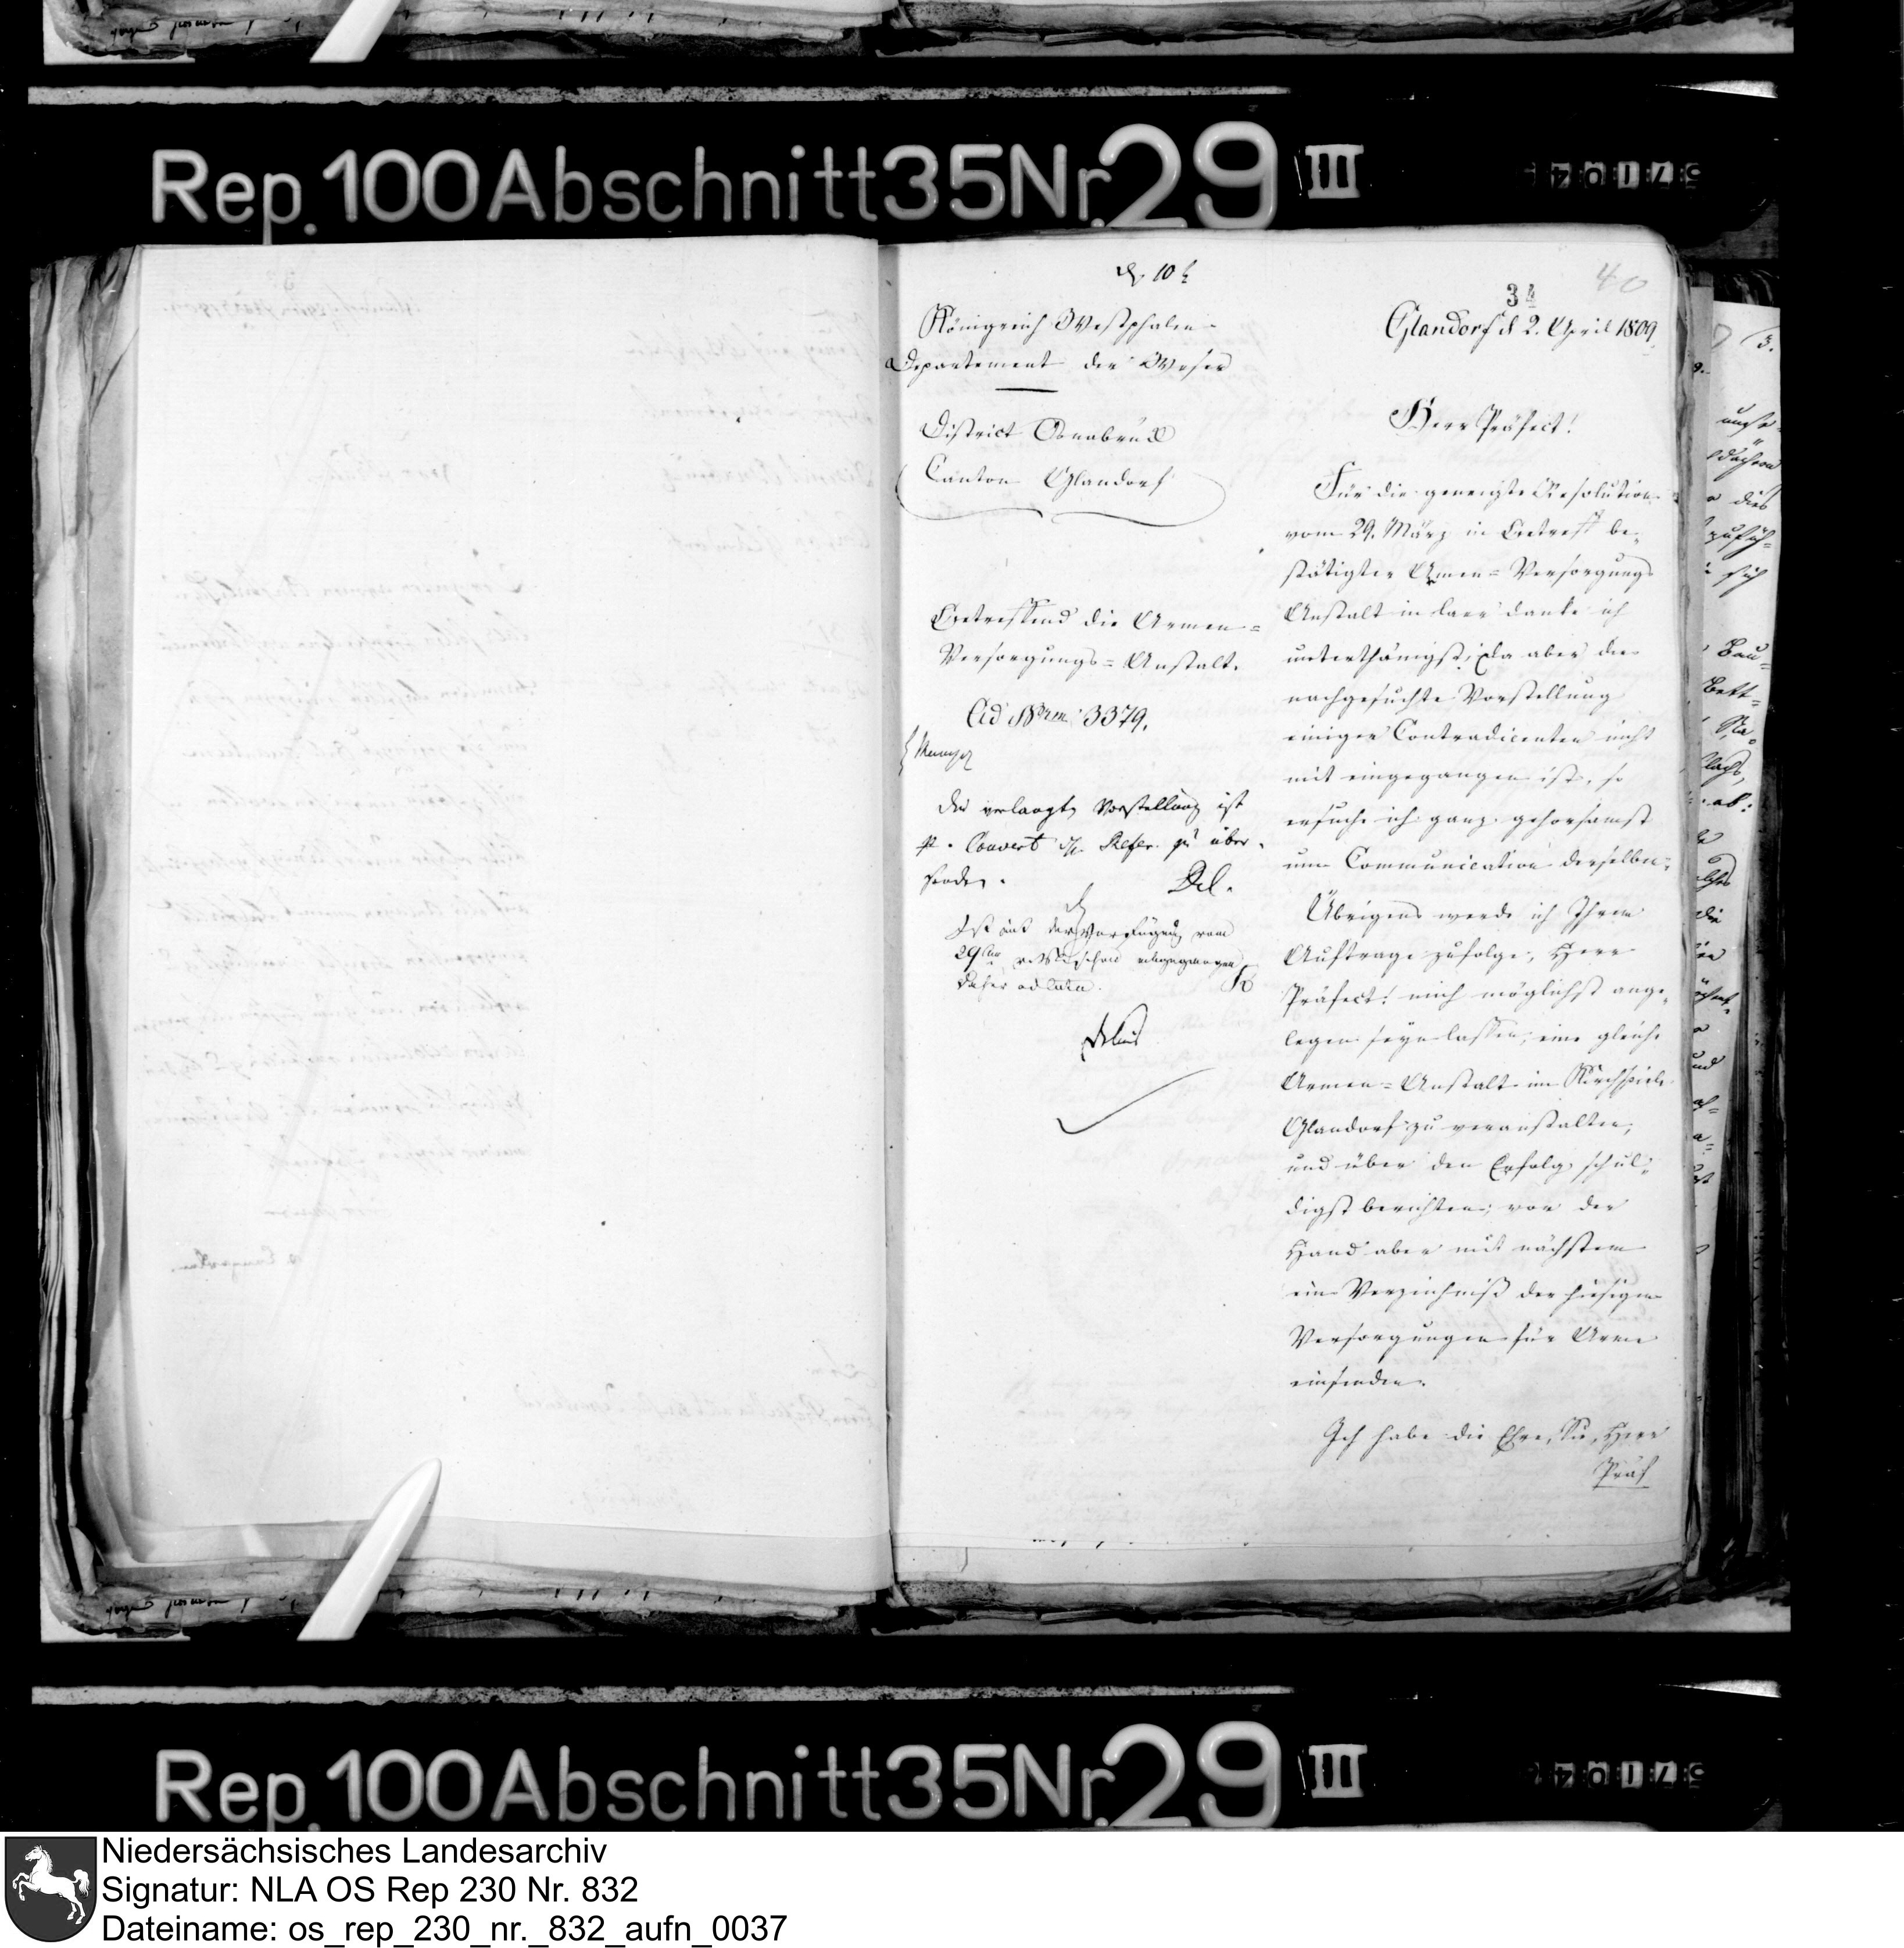 Rep. 100 Abschnitt 35 Nr. 29 III
34
40
Königreich Westphalen
Departement der Weser
District Osnabrück
Canton Glandorf
Betreffend die Armen=
Versorgungs=Anstalt.
Ad Num 3379.
Die verlangte Vorstellung ist
Couvert zu über
senden.
Del.
Ist mit der Verfügung vom
29ten schon
daher ad acta.
Delius
Glandorf d 2. April 1809.
Herr Präfect!
Für die geneigte Resolution
vom 29. März in Betreff be„
stätigter Armen=Versorgungs
Anstalt in Laer danke ich
unterthänigst; da aber die
nachgesuchte Vorstellung
einiger Contradicenten nicht
mit eingegangen ist, so
ersuche ich ganz gehorsamst
um Communication derselben.
Übrigens werde ich Ihrem
Auftrage zufolge, Herr
Präfect! mich möglichst ange„
legen seyn lassen, eine gleiche
Armen=Anstalt im Kirchspiele
Glandorf zu veranstalten,
und über den Erfolg schul„
digst berichten; vor der
Hand aber mit nächstem
ein Verzeichniß der hiesigen
Versorgungen für Arme
einsenden.
Ich habe die Ehre, Sie, Herr
Präf
Rep. 100 Abschnitt 35 Nr. 29 III
Niedersächsisches Landesarchiv
Signatur: NLA OS Rep 230 Nr. 832
Dateiname: os_rep_230_nr._832_aufn_0037